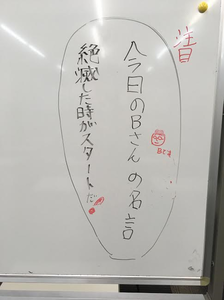 昔
今日のBさんの名言
Bさん
絶滅した時がスタートだ!